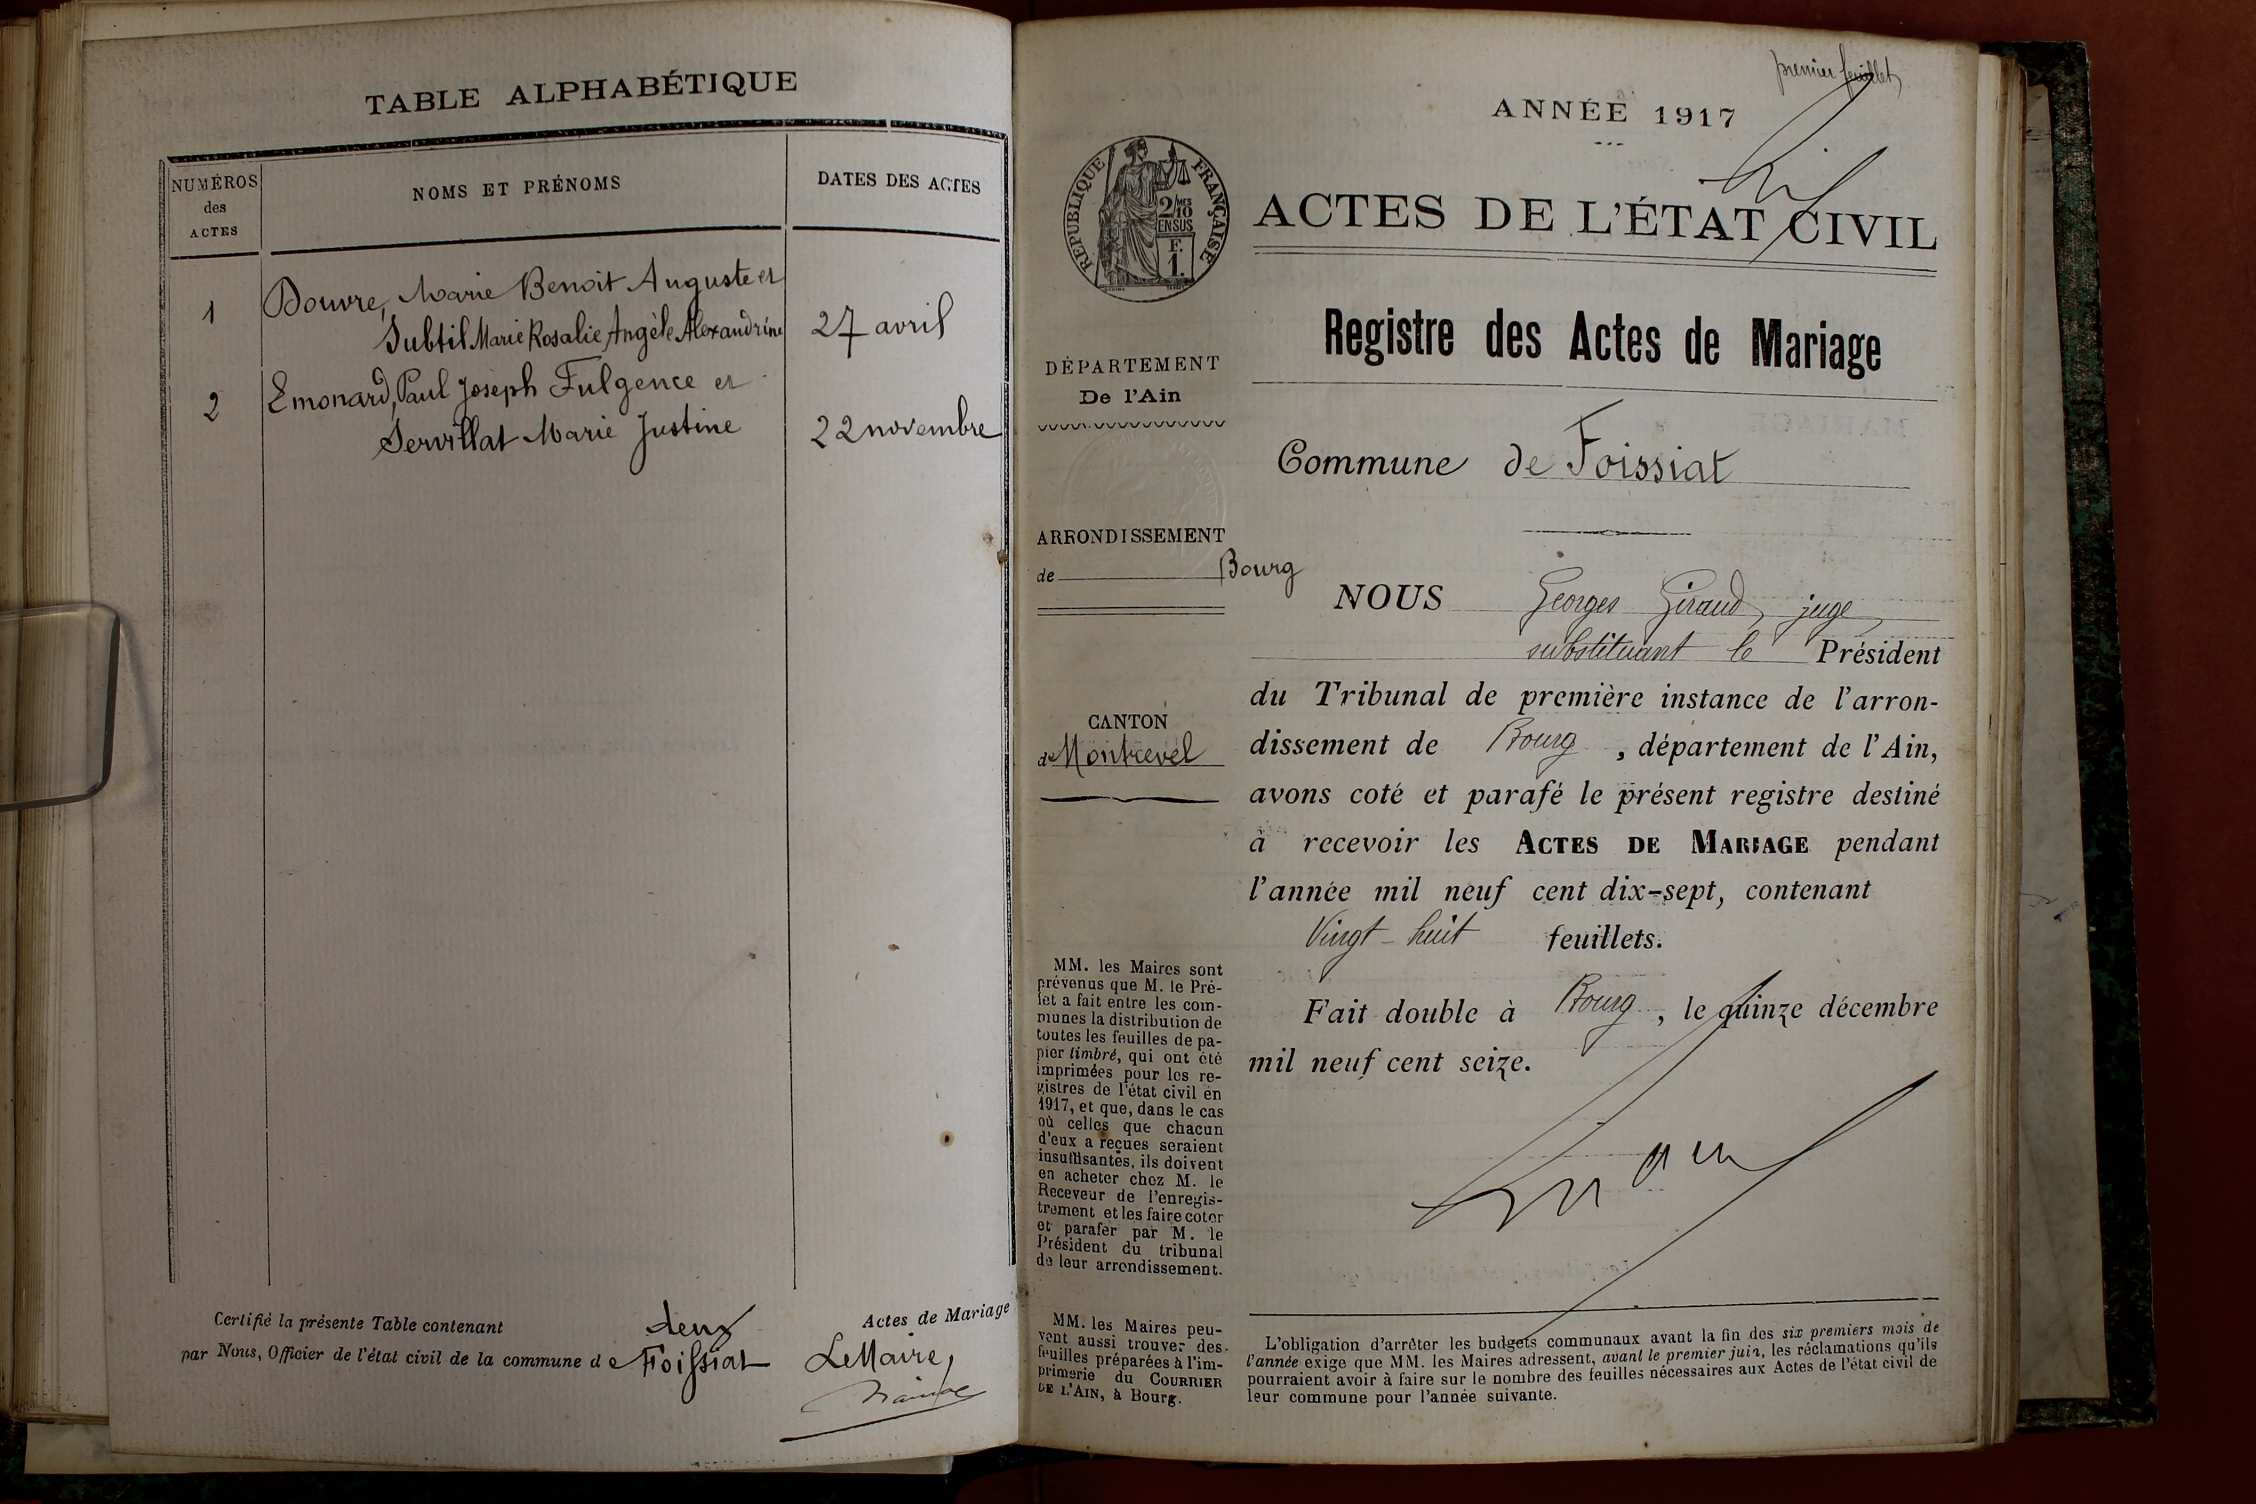 TABLE ALPHABÉTIQUE
NUMÉROS
des
ACTES
NOMS ET PRÉNOMS
DATES DES ACTES
1
Douvre, Marie Benoit Auguste et
Subtil Marie Rosalie Angèle Alexandrine
27 avril
2
Emonard, Paul Joseph Fulgence et
Servillat Marie Justine
22 novembre
Certifié la présente Table contenant deux Actes de Mariage
par Nous, Officier de l'état civil de la commune de Foissiat
Le Maire,
premier feuillet
ANNÉE 1917
RÉPUBLIQUE FRANÇAISE
2/10 MES
EN SUS
F.
1.
ACTES DE L'ÉTAT CIVIL
Registre des Actes de Mariage
DÉPARTEMENT
De l'Ain
Commune de Foissiat
ARRONDISSEMENT
de Bourg
CANTON
de Montrevel
NOUS Georges Giraud, juge
substituant le Président
du Tribunal de première instance de l'arron-
dissement de Bourg, département de l'Ain,
avons coté et parafé le présent registre destiné
à recevoir les ACTES DE MARIAGE pendant
l'année mil neuf cent dix-sept, contenant
Vingt-huit feuillets.
Fait double à Bourg, le quinze décembre
mil neuf cent seize.
MM. les Maires sont
prévenus que M. le Pré-
fet a fait entre les com-
munes la distribution de
toutes les feuilles de pa-
pier timbré, qui ont été
imprimées pour les re-
gistres de l'état civil en
1917, et que, dans le cas
où celles que chacun
d'eux a reçues seraient
insuffisantes, ils doivent
en acheter chez M. le
Receveur de l'enregis-
trement et les faire coter
et parafer par M. le
Président du tribunal
de leur arrondissement.
MM. les Maires peu-
vent aussi trouver des
feuilles préparées à l'im-
primerie du COURRIER
DE L'AIN, à Bourg.
L'obligation d'arrêter les budgets communaux avant la fin des six premiers mois de
l'année exige que MM. les Maires adressent, avant le premier juin, les réclamations qu'ils
pourraient avoir à faire sur le nombre des feuilles nécessaires aux Actes de l'état civil de
leur commune pour l'année suivante.